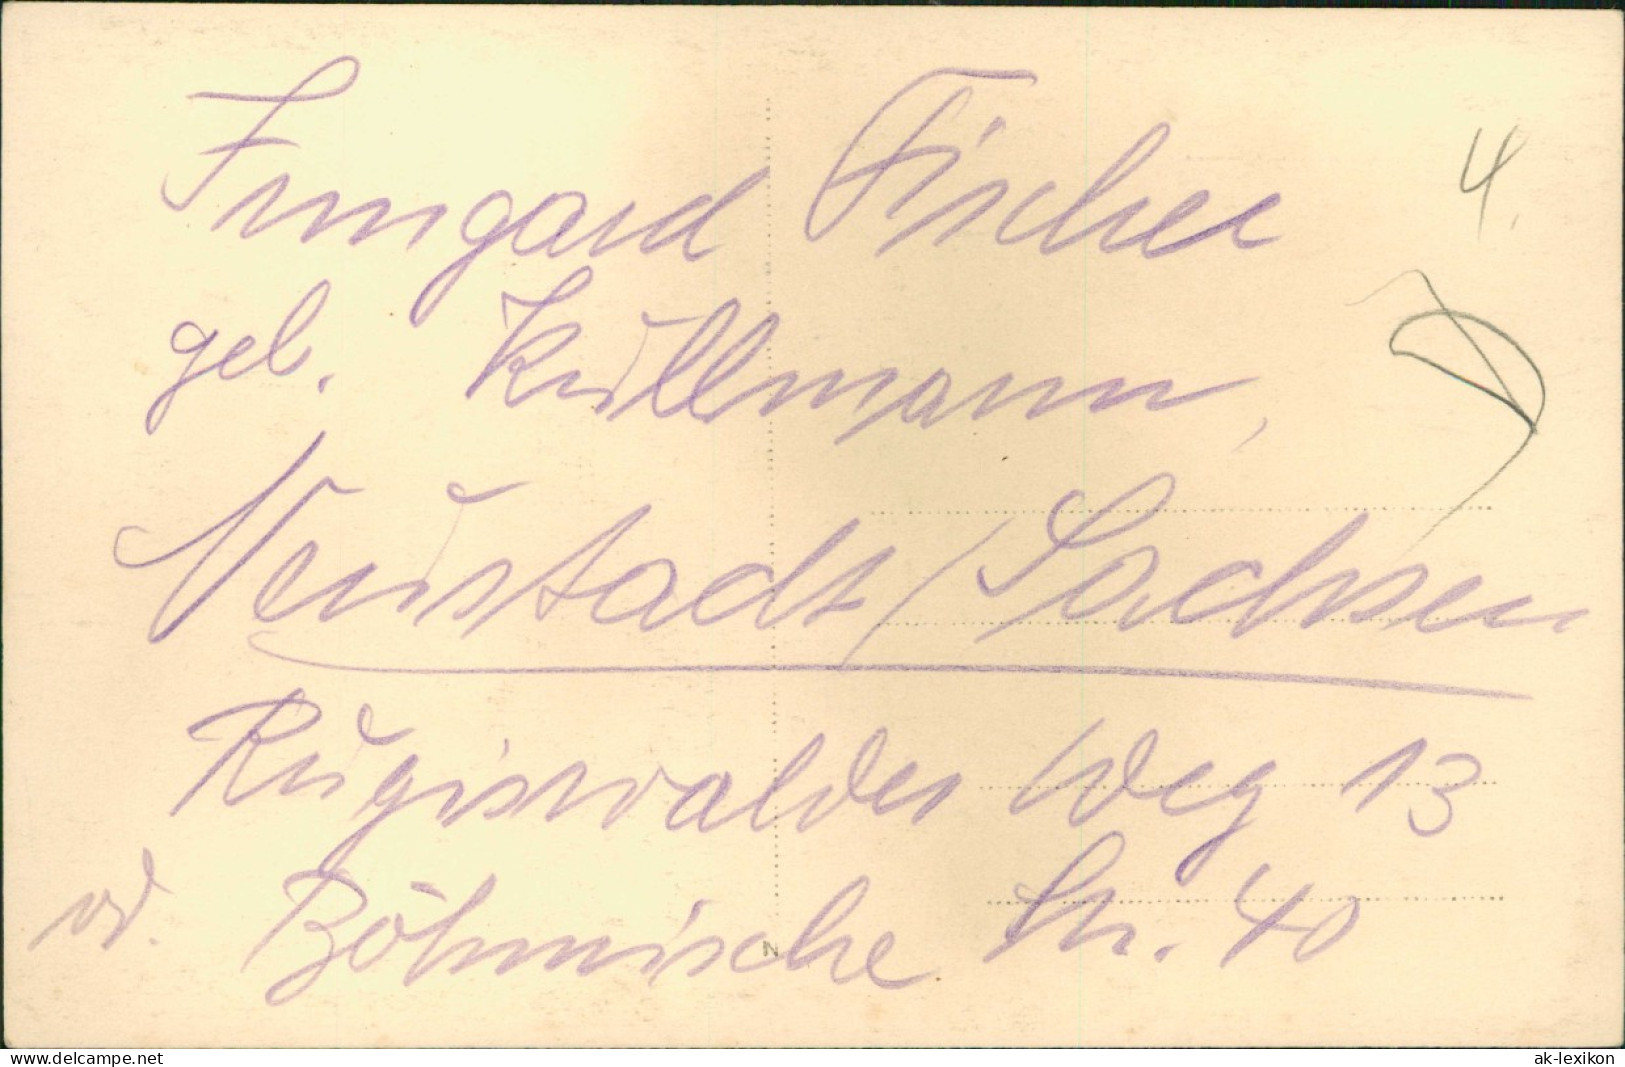 Irmgard Fischer
4.
geb. Kullmann,
Neustadt/Sachsen
Rugiswalder Weg 13
od. Böhmische Str. 40
www.delcampe.net
ak-lexikon